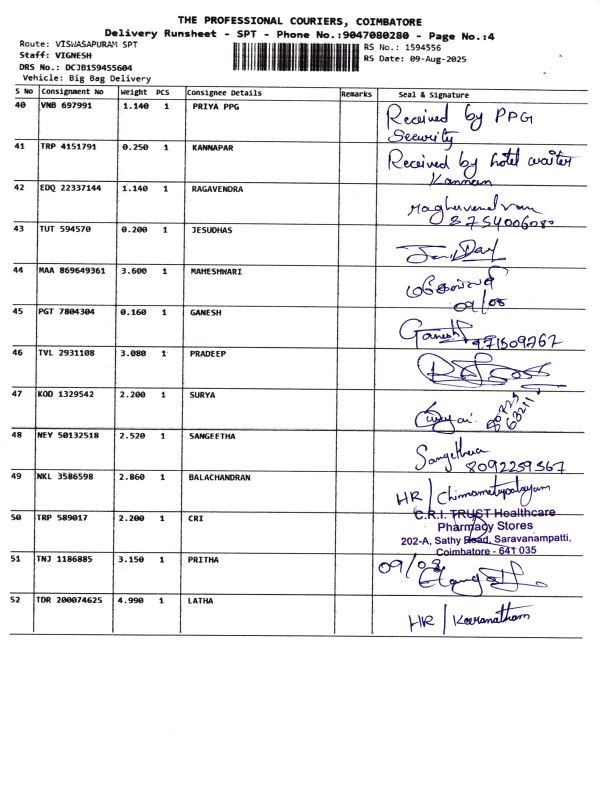 THE PROFESSIONAL COURIERS, COIMBATORE
Delivery Runsheet - SPT - Phone No.:9047080280 - Page No.:4
Route: VISWASAPURAM SPT
RS No.: 1594556
Staff: VIGNESH
RS Date: 09-Aug-2025
DRS No.: DCJB159455604
Vehicle: Big Bag Delivery
S No Consignment No Weight PCS Consignee Details Remarks Seal & Signature
40 VNB 697991 1.140 1 PRIYA PPG
Received by PPG
Security
41 TRP 4151791 0.250 1 KANNAPAR
Received by hotel waiter
Kannan
42 EDQ 22337144 1.140 1 RAGAVENDRA
8754006080
43 TUT 594570 0.200 1 JESUDHAS
44 MAA 869649361 3.600 1 MAHESHWARI
09/08
45 PGT 7804304 0.160 1 GANESH
Ganesh
46 TVL 2931108 3.080 1 PRADEEP
47 KOD 1329542 2.200 1 SURYA
48 NEY 50132518 2.520 1 SANGEETHA
Sangeetha
8092259367
49 NKL 3586598 2.860 1 BALACHANDRAN
HR / Chinnametupalayam
50 TRP 589017 2.200 1 CRI
C.R.I. TRUST Healthcare
Pharmacy Stores
202-A, Sathy Road, Saravanampatti,
Coimbatore - 641 035
51 TNJ 1186885 3.150 1 PRITHA
09/08
52 TDR 200074625 4.990 1 LATHA
HR / Keeranatham